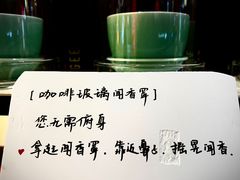 [咖啡玻璃闻香罩]
您无需俯身
♥拿起闻香罩.靠近鼻子.摇晃闻香.